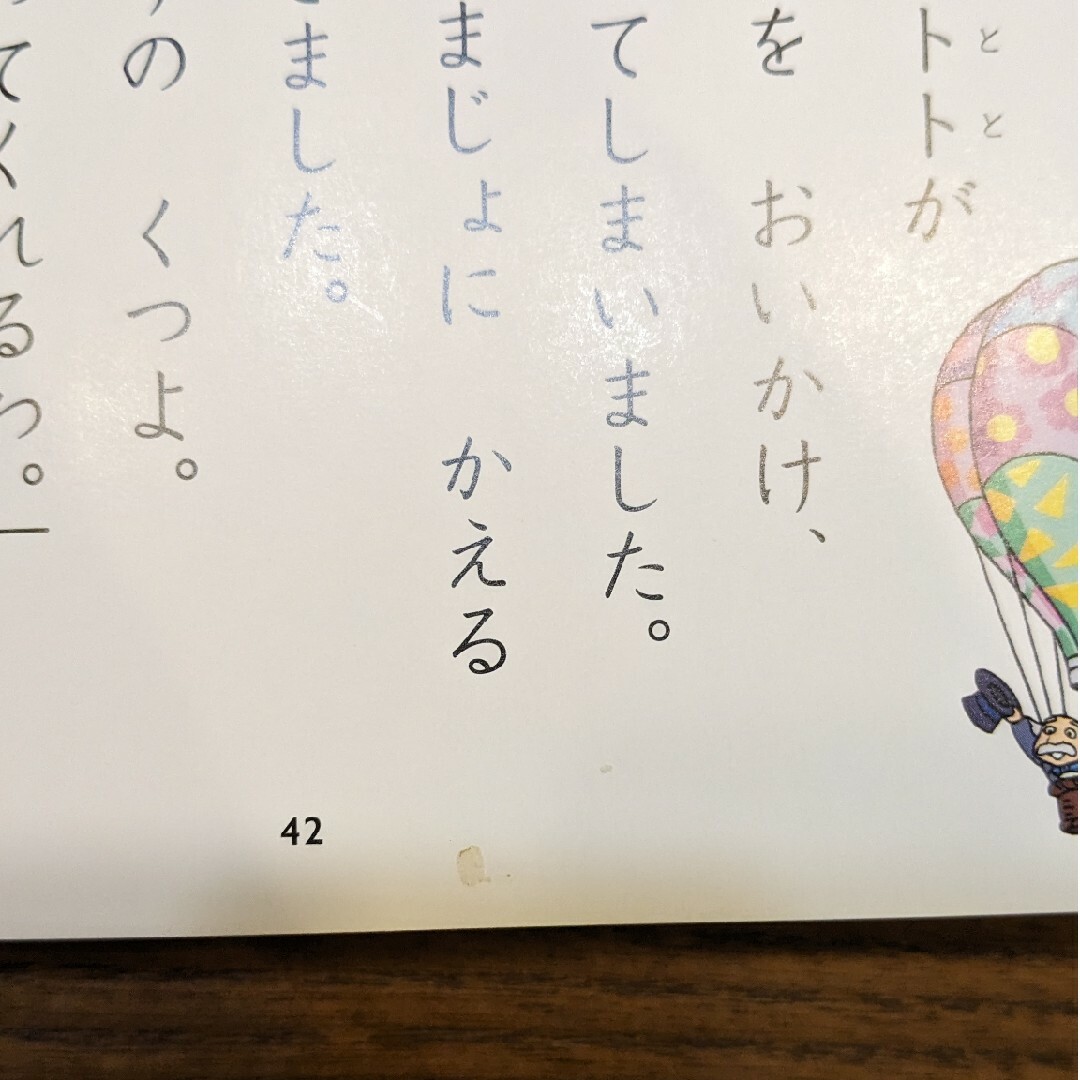 トトが
とと
を おいかけ、
てしまいました。
まじょに かえる
ました。
の くつよ。
てくれるわ。
42